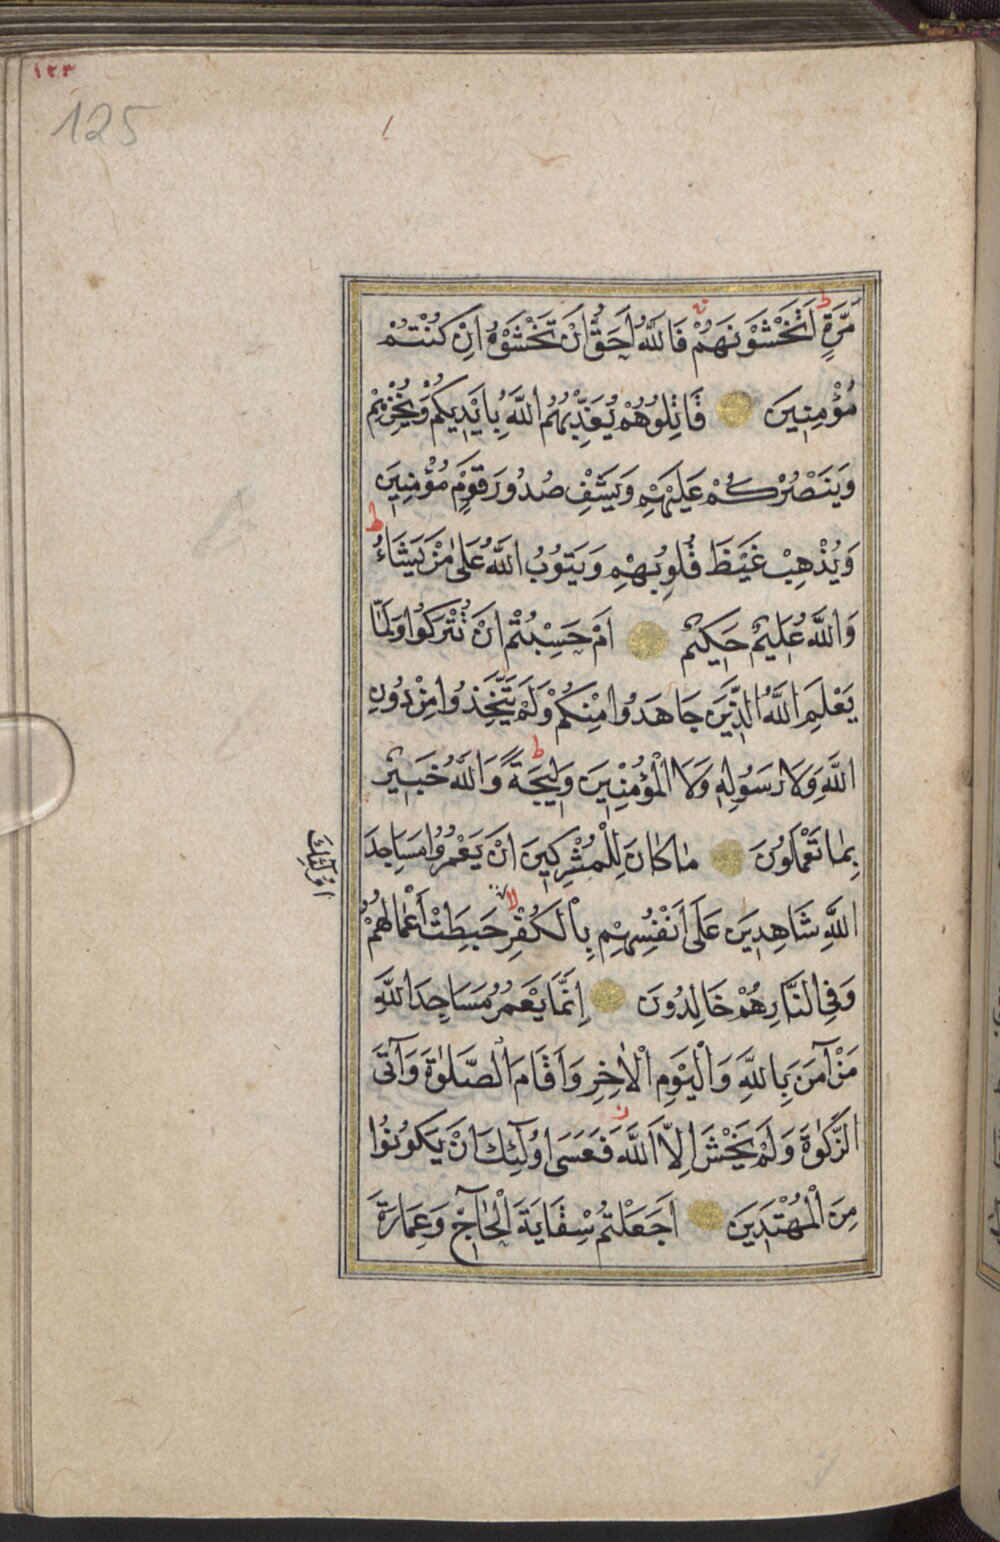 ١٢٣
125
مَرَّةٍ اَتَخْشَوْنَهُمْ فَاللّٰهُ اَحَقُّ اَنْ تَخْشَوْهُ اِنْ كُنْتُمْ
مُؤْمِنِينَ قَاتِلُوهُمْ يُعَذِّبْهُمُ اللّٰهُ بِاَيْدِيكُمْ وَيُخْزِهِمْ
وَيَنْصُرْكُمْ عَلَيْهِمْ وَيَشْفِ صُدُورَ قَوْمٍ مُؤْمِنِينَ
وَيُذْهِبْ غَيْظَ قُلُوبِهِمْ وَيَتُوبُ اللّٰهُ عَلٰى مَنْ يَشَاءُ
وَاللّٰهُ عَلِيمٌ حَكِيمٌ اَمْ حَسِبْتُمْ اَنْ تُتْرَكُوا وَلَمَّا
يَعْلَمِ اللّٰهُ الَّذِينَ جَاهَدُوا مِنْكُمْ وَلَمْ يَتَّخِذُوا مِنْ دُونِ
اللّٰهِ وَلَا رَسُولِهِ وَلَا الْمُؤْمِنِينَ وَلِيجَةً وَاللّٰهُ خَبِيرٌ
بِمَا تَعْمَلُونَ مَا كَانَ لِلْمُشْرِكِينَ اَنْ يَعْمُرُوا مَسَاجِدَ
اللّٰهِ شَاهِدِينَ عَلَى اَنْفُسِهِمْ بِالْكُفْرِ حَبِطَتْ اَعْمَالُهُمْ
اُولٰئِكَ
وَفِي النَّارِ هُمْ خَالِدُونَ اِنَّمَا يَعْمُرُ مَسَاجِدَ اللّٰهِ
مَنْ آمَنَ بِاللّٰهِ وَالْيَوْمِ الْاٰخِرِ وَاَقَامَ الصَّلٰوةَ وَآتَى
الزَّكٰوةَ وَلَمْ يَخْشَ اِلَّا اللّٰهَ فَعَسَى اُولٰئِكَ اَنْ يَكُونُوا
مِنَ الْمُهْتَدِينَ اَجَعَلْتُمْ سِقَايَةَ الْحَاجِّ وَعِمَارَةَ